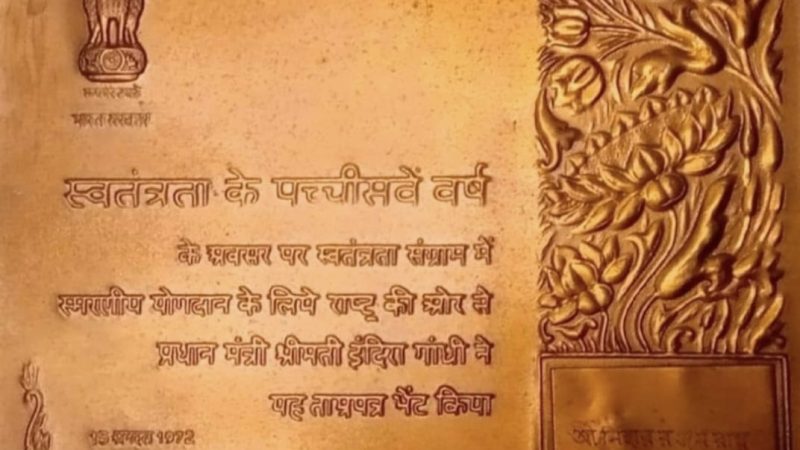 सत्यमेव जयते
भारत सरकार
स्वतंत्रता के पच्चीसवें वर्ष
के अवसर पर स्वतंत्रता संग्राम में
स्मरणीय योगदान के लिये राष्ट्र की ओर से
प्रधान मंत्री श्रीमती इंदिरा गांधी ने
यह ताम्रपत्र भेंट किया
15 अगस्त 1972